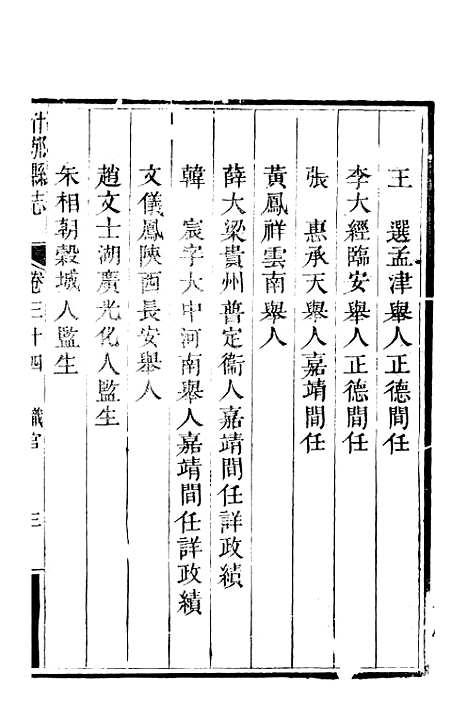 王　選孟津舉人正德間任
李大經臨安舉人正德間任
張　惠承天舉人嘉靖間任
黃鳳祥雲南舉人
薛大梁貴州普定衞人嘉靖間任詳政績
韓　宸字大中河南舉人嘉靖間任詳政績
文儀鳳陝西長安舉人
趙文士湖廣光化人監生
朱相朝穀城人監生
什邡縣志　卷三十四　職官　三